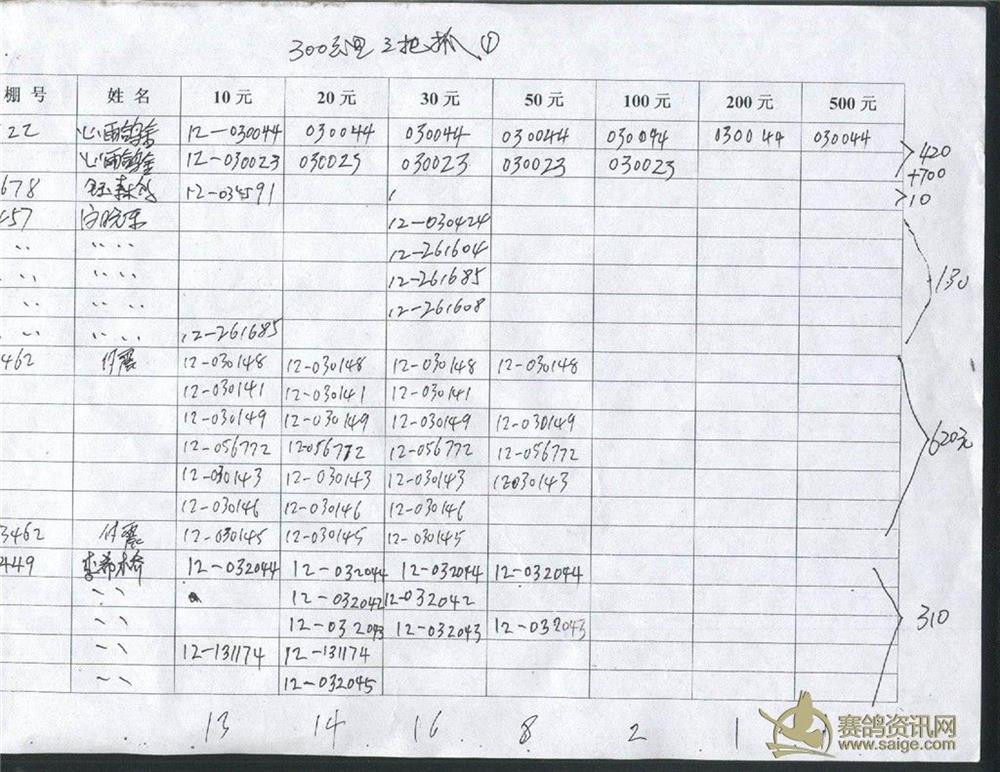 300公里三把抓①
棚号 姓名 10元 20元 30元 50元 100元 200元 500元
22 心雨鸽舍 12-030044 030044 030044 030044 030044 030044 030044
心雨鸽舍 12-030023 030023 030023 030023 030023
>420
+700
678 12-034591
>10
457 12-030424
〃 〃 〃 12-261604
〃 〃 〃 12-261685
〃 〃 〃 12-261608
〃 〃 〃 12-261685
130
462 付震 12-030148 12-030148 12-030148 12-030148
12-030141 12-030141 12-030141
12-030149 12-030149 12-030149 12-030149
12-056772 12-056772 12-056772 12-056772
12-030143 12-030143 12-030143 12-030143
12-030146 12-030146 12-030146
3462 付震 12-030145 12-030145 12-030145
620元
449 12-032044 12-032044 12-032044 12-032044
〃 12-032042 12-032042
〃 12-032043 12-032043 12-032043
〃 12-131174 12-131174
〃 12-032045
310
13 14 16 8 2 1
赛鸽资讯网
www.saige.com